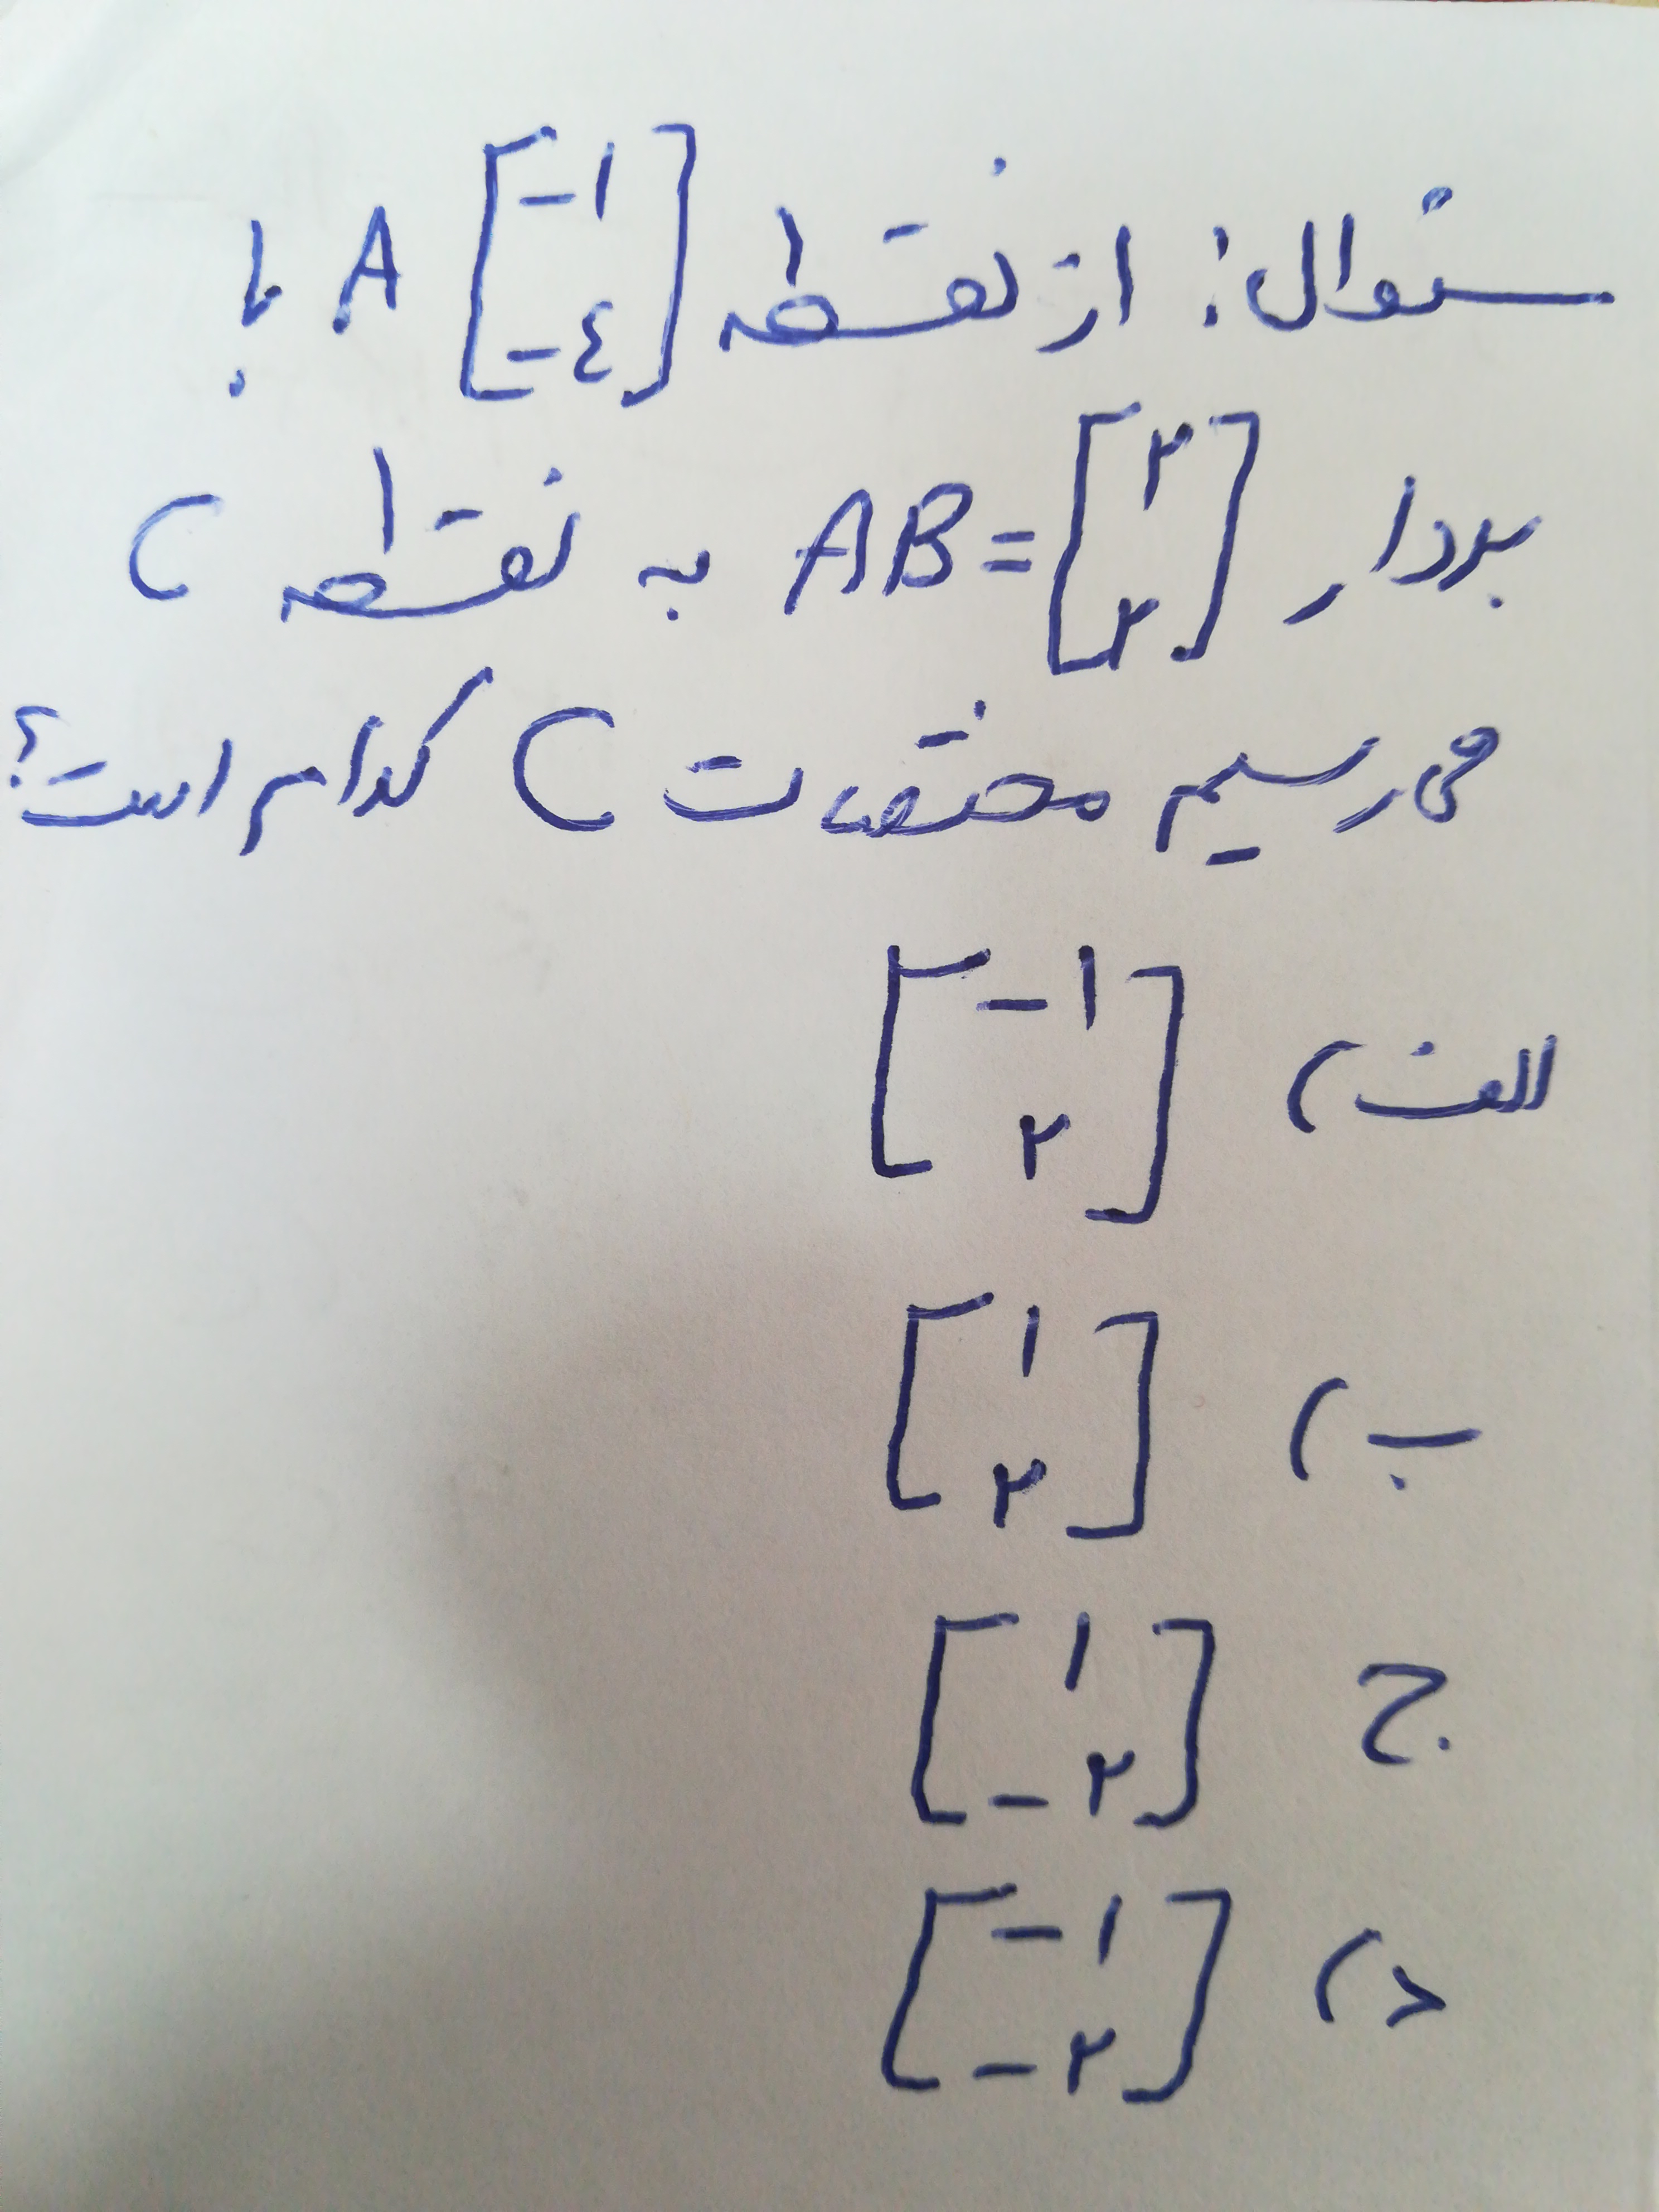 سئوال: از نقطه [-۱ -٤] A با
بردار AB = [۲ ۲] به نقطه C
می رسیم مختصات C کدام است؟
الف) [-۱ ۲]
ب) [۱ ۲]
ج [۱ -۲]
د) [-۱ -۲]